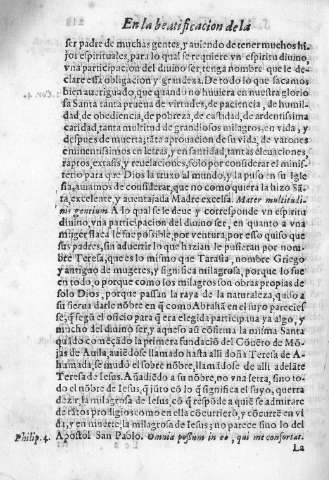 En la beatificacion de la
ser padre de muchas gentes, y auiendo de tener muchos hi
jos espirituales, para lo qual se requiere vn espiritu diuino,
vna participacion del diuino ser, tenga nombre que le de
clare essa obligacion y grandeza. De todo lo que sacamos
bien aueriguado, que quando no huuiera en nuestra glorio
sa Santa tanta prueua de virtudes, de paciencia, de humil
dad, de obediencia, de pobreza, de castidad, de ardentissima
caridad, tanta multitud de grandiosos milagros, en vida, y
despues de muerta; tãta aprouacion de su vida, de varones
eminentissimos en letras, y en santidad, tantas eleuaciones,
raptos, extasis, y reuelaciones, solo por considerar el minis-
terio para que Dios la truxo al mundo, y la puso en su Igle
sia, auiamos de considerar, que no como quiera la hizo Sã
ta, excelente, y auentajada Madre excelsa. Mater multitudi-
nis gentium A lo qual se le deue y corresponde vn espiritu
diuino, vna participacion del diuino ser, en quanto a vna
muger flaca le fue possible, por ventura, por esso quiso que
sus padres, sin aduertir lo que hazian le pusiessen por nom
bre Teresa, que es lo mismo que Tarasia, nombre Griego
y antiguo de mugeres, y significa milagrosa, porque lo fue
en todo, o porque como los milagros son obras propias de
solo Dios, porque passan la raya de la naturaleza, quiso a
su sierua darle nõbre en q̃ como Abrahã en el suyo parecies
se, q̃ segũ el oficio para q̃ era elegida participaua ya algo, y
mucho del diuino ser, y aquesso aũ cõfirma la misma Santa
quãdo comẽçado la primera fundaciõ del Cõuẽto de Mõ-
jas de Auila, auiẽdose llamado hasta alli doña Teresa de A-
humada, se mudó el sobre nõbre, llamãdose de alli adelãte
Teresa de Iesus. Añadiẽdo a su nõbre, no vna letra, sino to-
do el nõbre de Iesus, q̃ jũto cõ lo q̃ significa el suyo, querra
dezir, la milagrosa de Iesus, cõ q̃ respõde a quiẽ se admirare
de tãtos prodigios, como en ella cõcurrierõ, y cõcurrẽ en vi
da, y en muerte, la milagrosa de Iesus, no parece sino lo del
Philip. 4. Apostol San Pablo. Omnia possum in eo, qui me confortat.
La